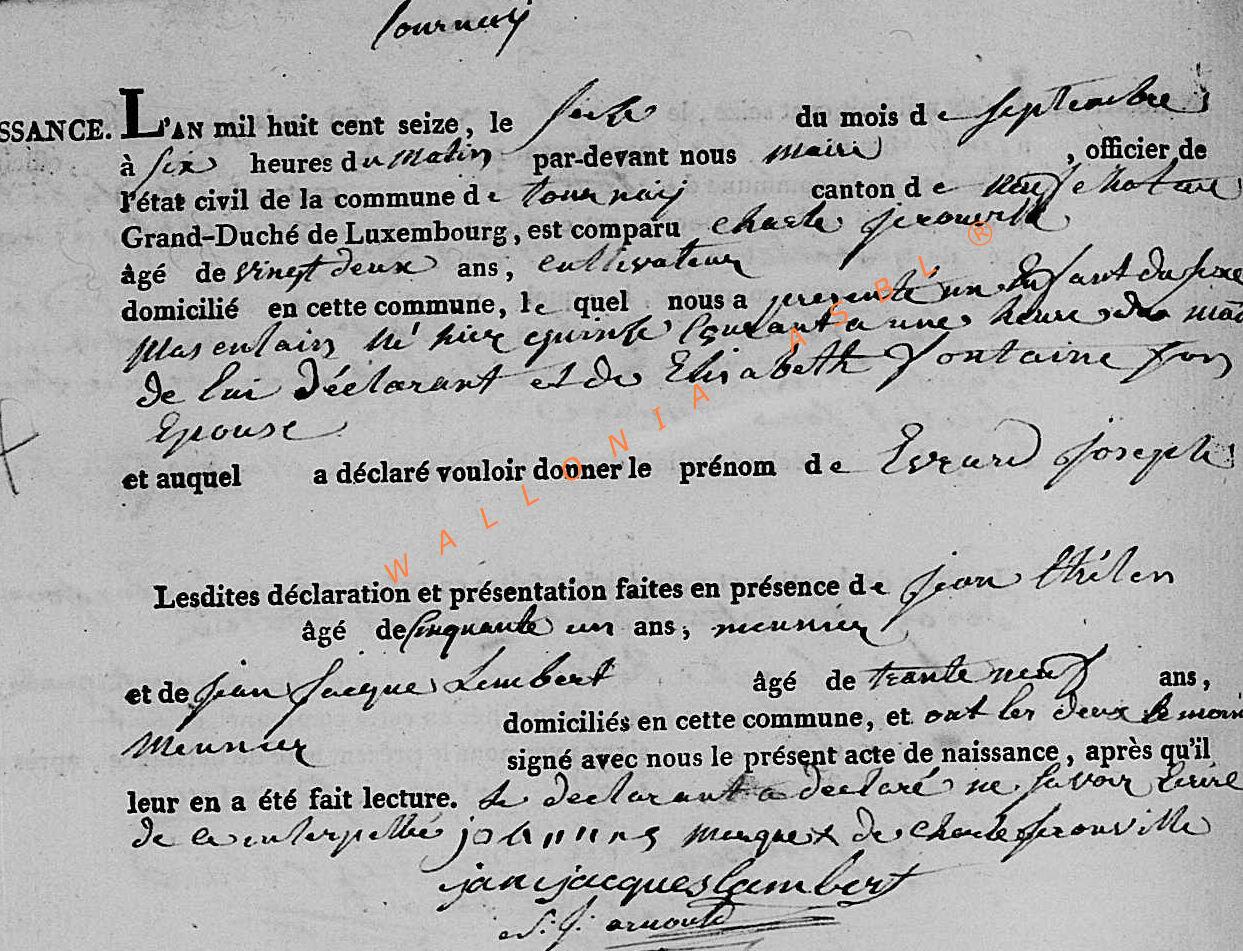 tournay
SSANCE. L'AN mil huit cent seize, le seize du mois de Septembre
à Six heures du Matin par-devant nous maire , officier de
l'état civil de la commune de tournay canton de neufchateau
Grand-Duché de Luxembourg, est comparu charle gerouville
âgé de vingt deux ans, cultivateur
domicilié en cette commune, le quel nous a presenté un Enfant du sexe
Masculain Né hier quinse Courant a une heure du mat
de lui déclarant et de Elisabeth fontaine son
Epouse
et auquel a déclaré vouloir donner le prénom de Evrard joseph
Lesdites déclaration et présentation faites en présence de jean thilen
âgé de Cinquante un ans, meunier
et de jean jacque Lembert âgé de trante neuf ans,
Meunier domiciliés en cette commune, et ont les deux te moin
signé avec nous le présent acte de naissance, après qu'il
leur en a été fait lecture. Le declarant a declaré ne savoir Ecrire
de ce interpellé marque x de charle gerouville
janjacques lambert
arnould
WALLONIA ASBL ®